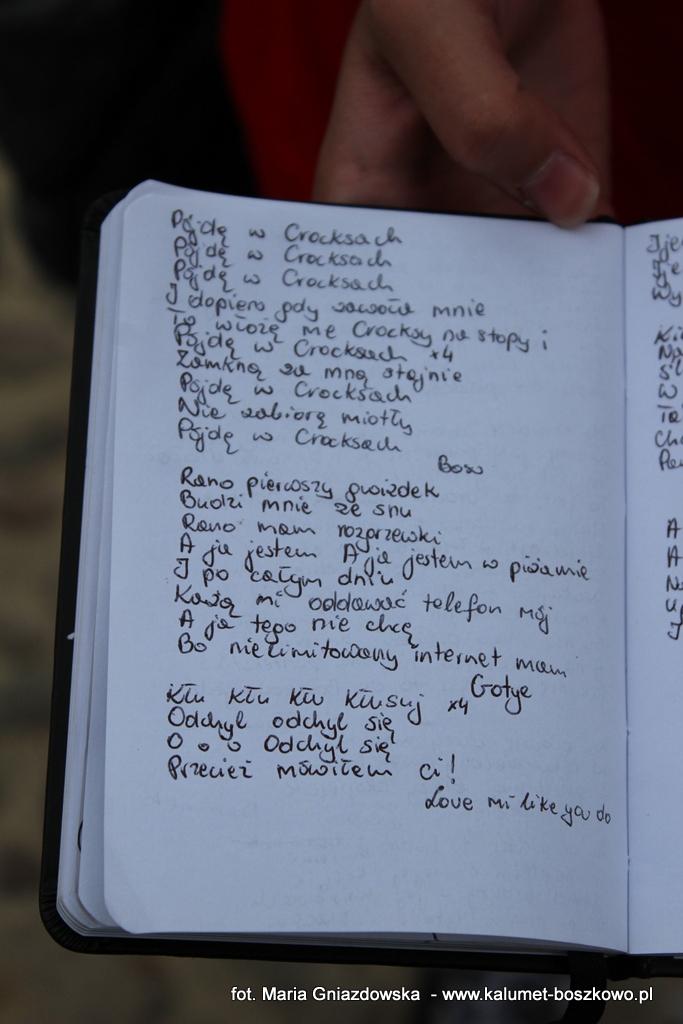 Pójdę w Crocksach
Pójdę w Crocksach
Pójdę w Crocksach
I dopiero gdy zawoła mnie
To włożę me Crocksy na stopy i
Pójdę w Crocksach x4
Zamkną za mną stajnie
Pójdę w Crocksach
Nie zabiorą miotły
Pójdę w Crocksach
Boso
Rano pierwszy gwizdek
Budzi mnie ze snu
Rano mam rozprzewki
A ja jestem A ja jestem w piżamie
I po całym dniu
Każą mi oddawać telefon mój
A ja tego nie chcę
Bo nielimitowany internet mam
Gotye
Kłu kłu kłu kłusuj x4
Odchyl odchyl się
O o o Odchyl się
Przecież mówiłem ci!
Love mi like you do
A
A
fot. Maria Gniazdowska - www.kalumet-boszkowo.pl